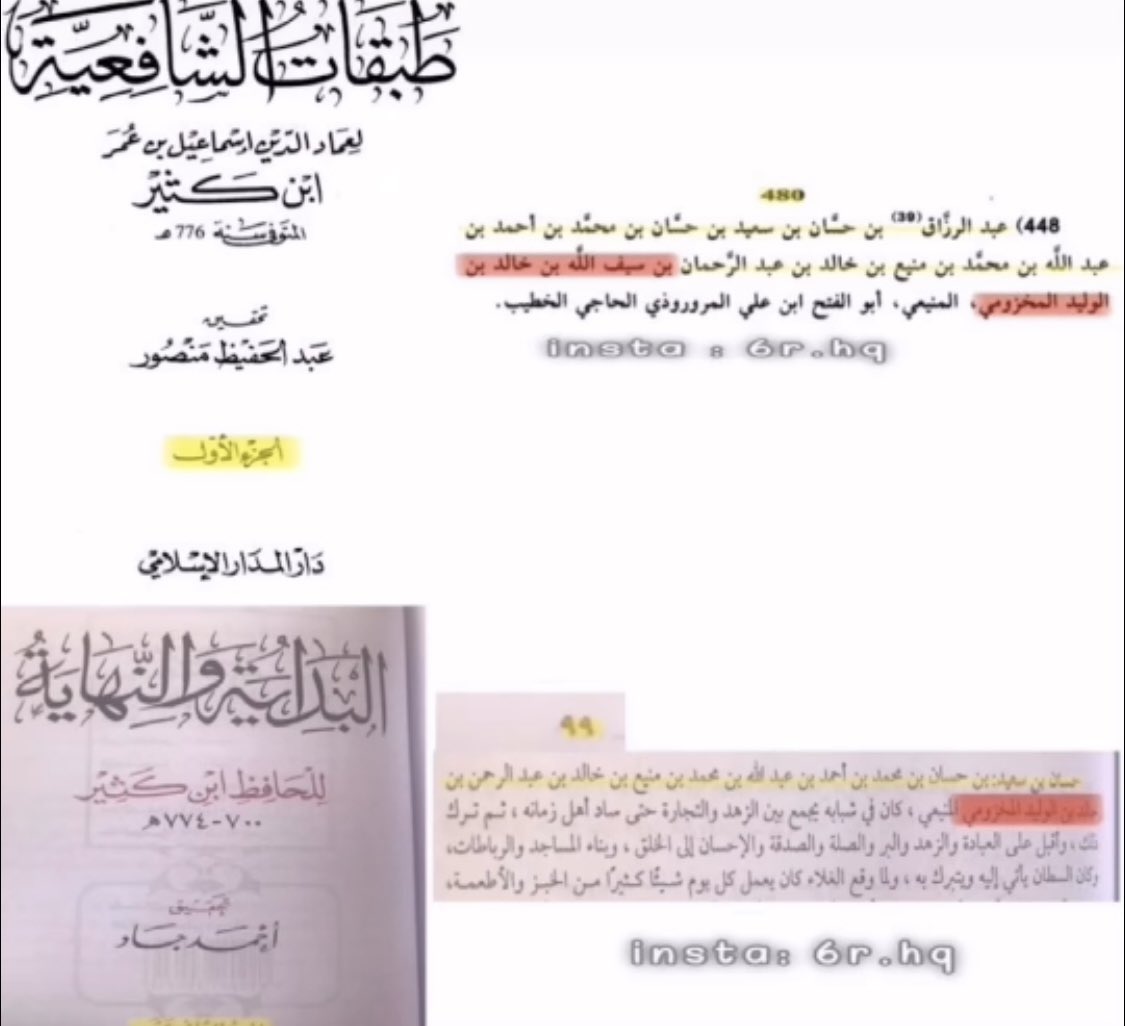 طَبَقَاتُ الشَّافِعِيَّةِ
لِعِمَاد الدّيْن اسْمَاعِيْل بن عُمَر
ابْن كَثِيْر
المتَوفّى سَنَة 776 هـ
تحقيق
عَبد الحَفيْظ مَنْصُور
الجزء الأوّل
دَار المدَار الإسْلامي
480
448) عبد الرزَّاق(39) بن حسَّان بن سعيد بن حسَّان بن محمَّد بن أحمد بن
عبد اللَّه بن محمَّد بن منيع بن خالد بن عبد الرَّحمان بن سيف اللَّه بن خالد بن
الوليد المخزومي، المنيعي، أبو الفتح ابن علي المروروذي الحاجي الخطيب.
insta : 6r.hq
البِدَايَة وَالنِّهَايَةُ
لِلحَافِظ ابن كَثِيْر
٧٠٠-٧٧٤هـ
تحقيق
أحمد جاد
٩٩
حسان بن سعيد: بن حسان بن محمد بن أحمد بن عبد الله بن محمد بن منيع بن خالد بن عبد الرحمن بن
خالد بن الوليد المخزومي المنيعي ، كان في شبابه يجمع بين الزهد والتجارة حتى ساد أهل زمانه ، ثم ترك
ذلك ، وأقبل على العبادة والزهد والبر والصلة والصدقة والإحسان إلى الخلق ، وبناء المساجد والرباطات،
وكان السلطان يأتي إليه ويتبرك به ، ولما وقع الغلاء كان يعمل كل يوم شيئًا كثيرًا من الخبز والأطعمة،
insta: 6r.hq